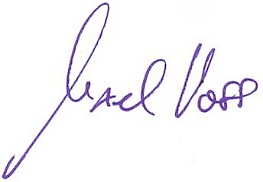 Axel Voss